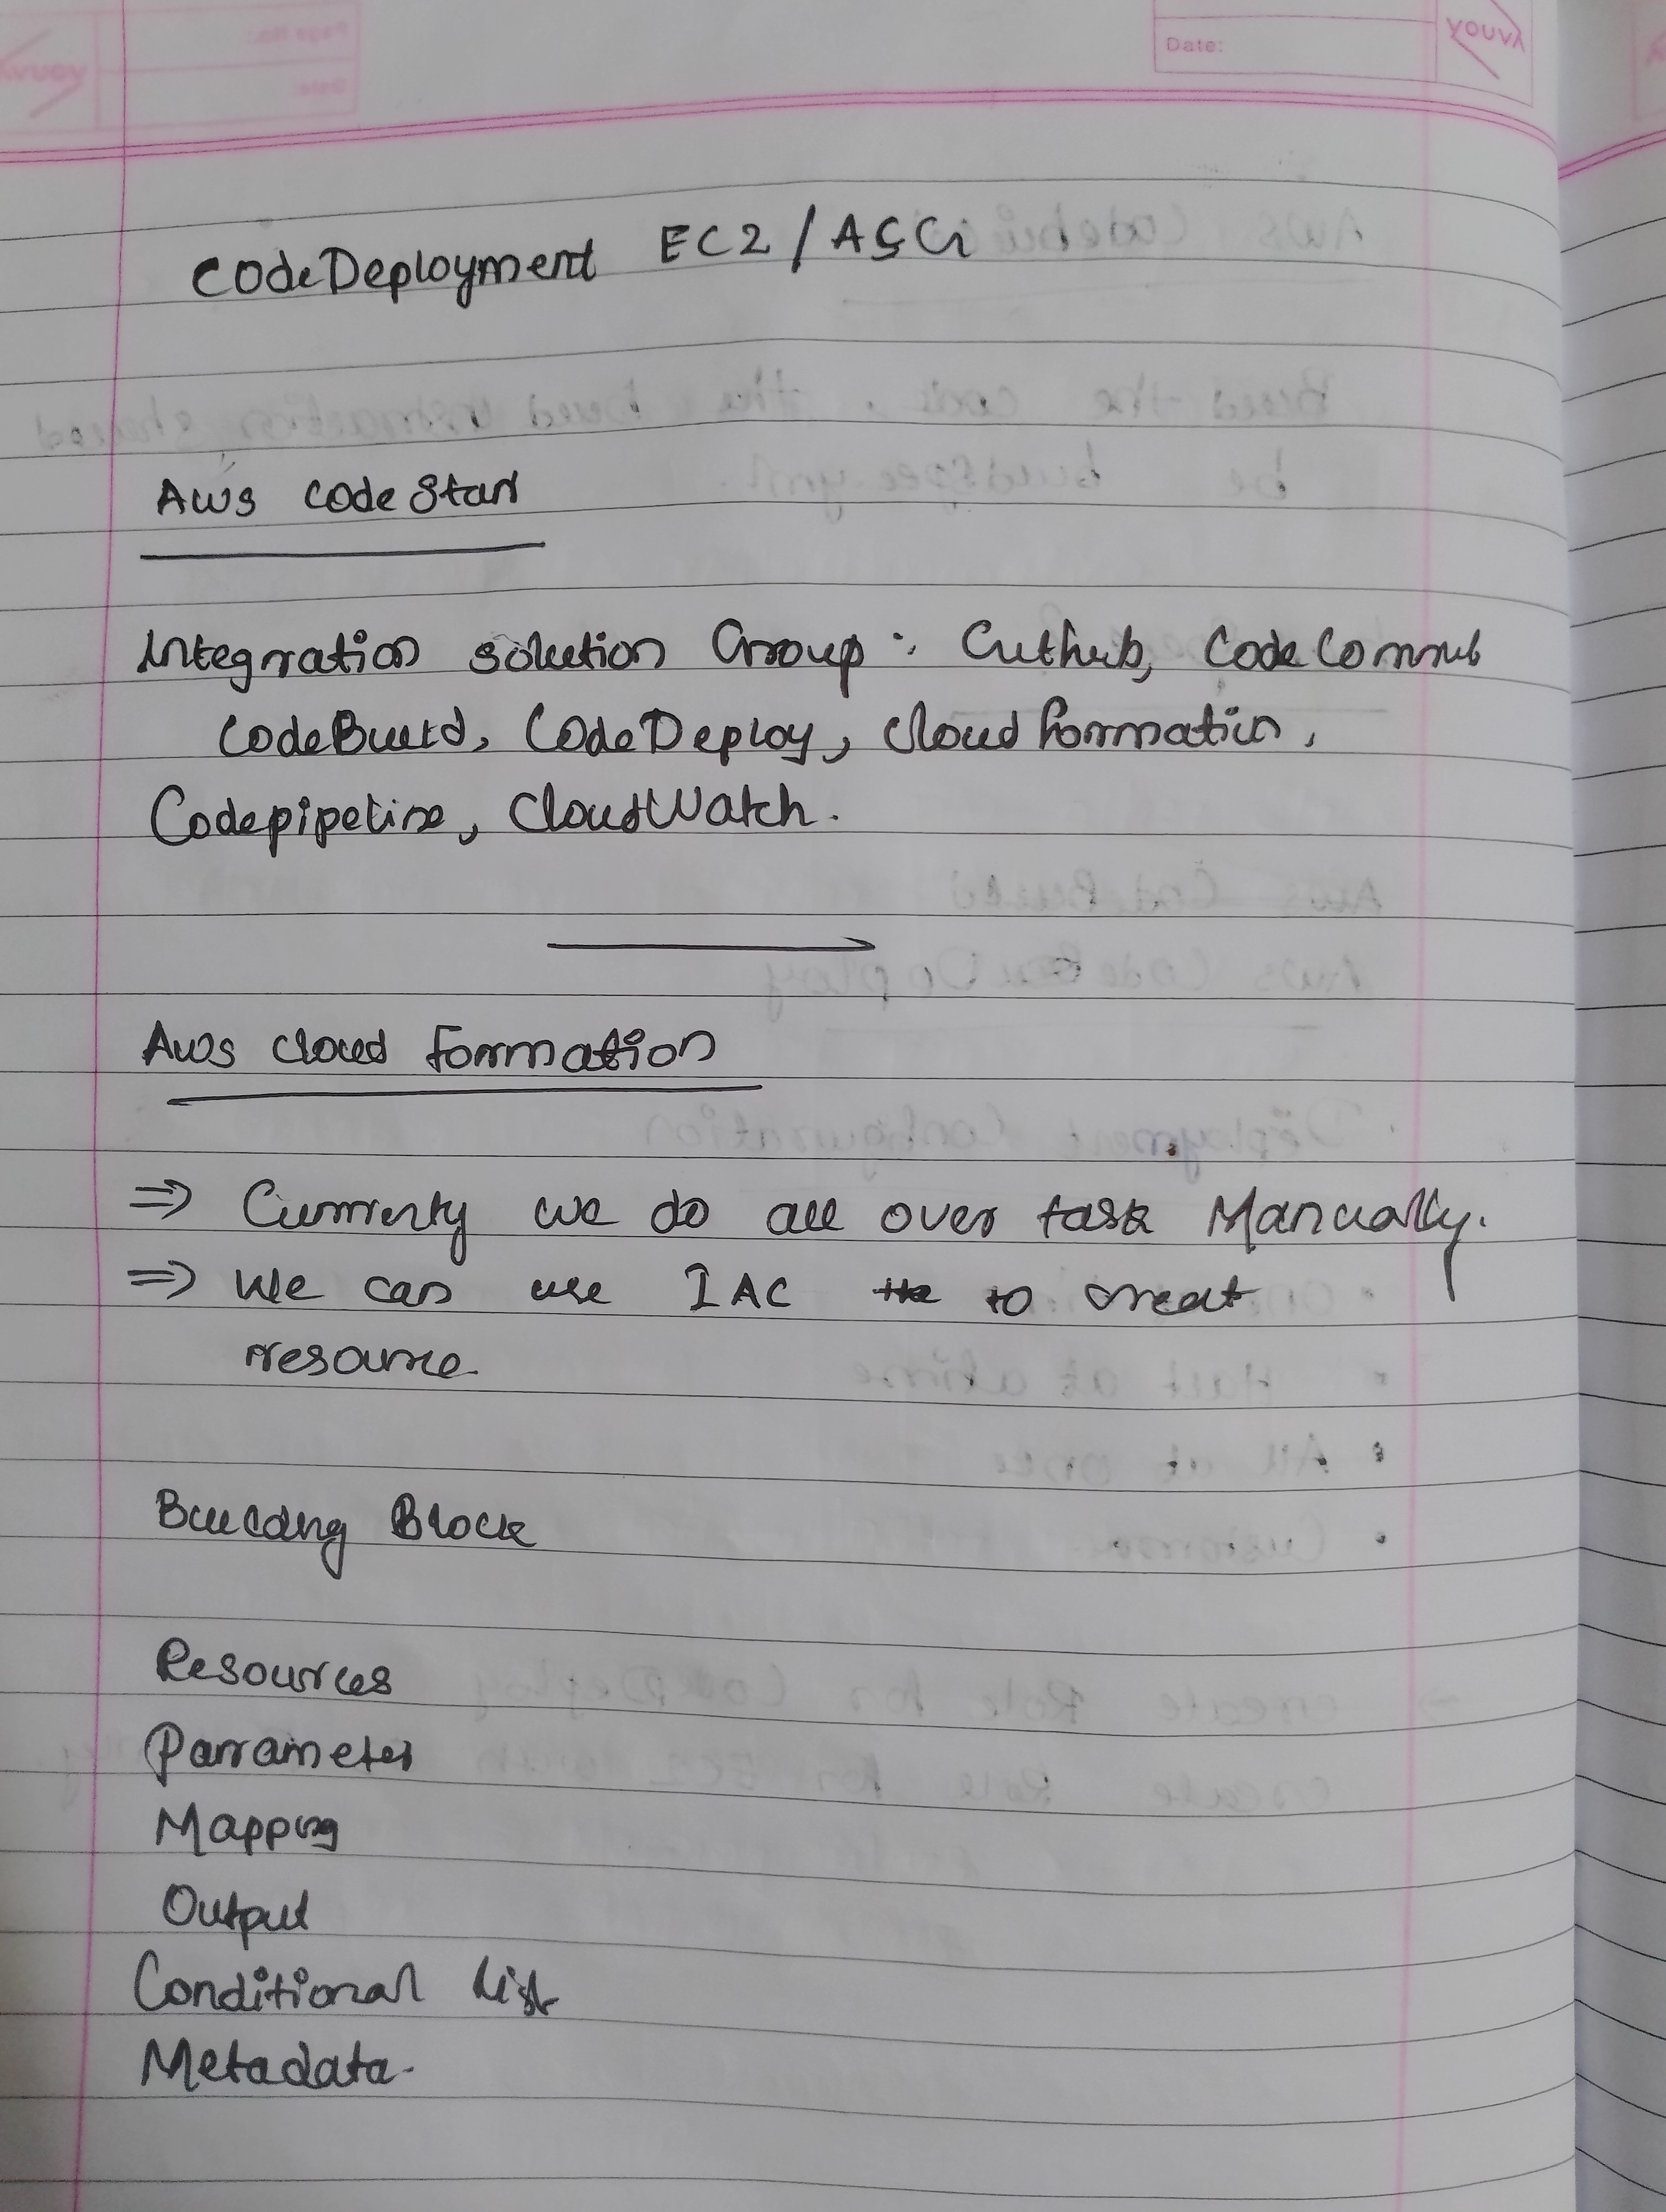 Date:
YOUVA
CodeDeployment EC2 / ASG
Aws CodeStar
Integration solution Group : Github, CodeCommit
CodeBuild, CodeDeploy, CloudFormation,
Codepipeline, CloudWatch.
Aws Cloud Formation
⇒ Currently we do all over task Manually.
⇒ We can use IAC to creat
resource.
Building Block
Resources
Parameter
Mapping
Output
Conditional List
Metadata.